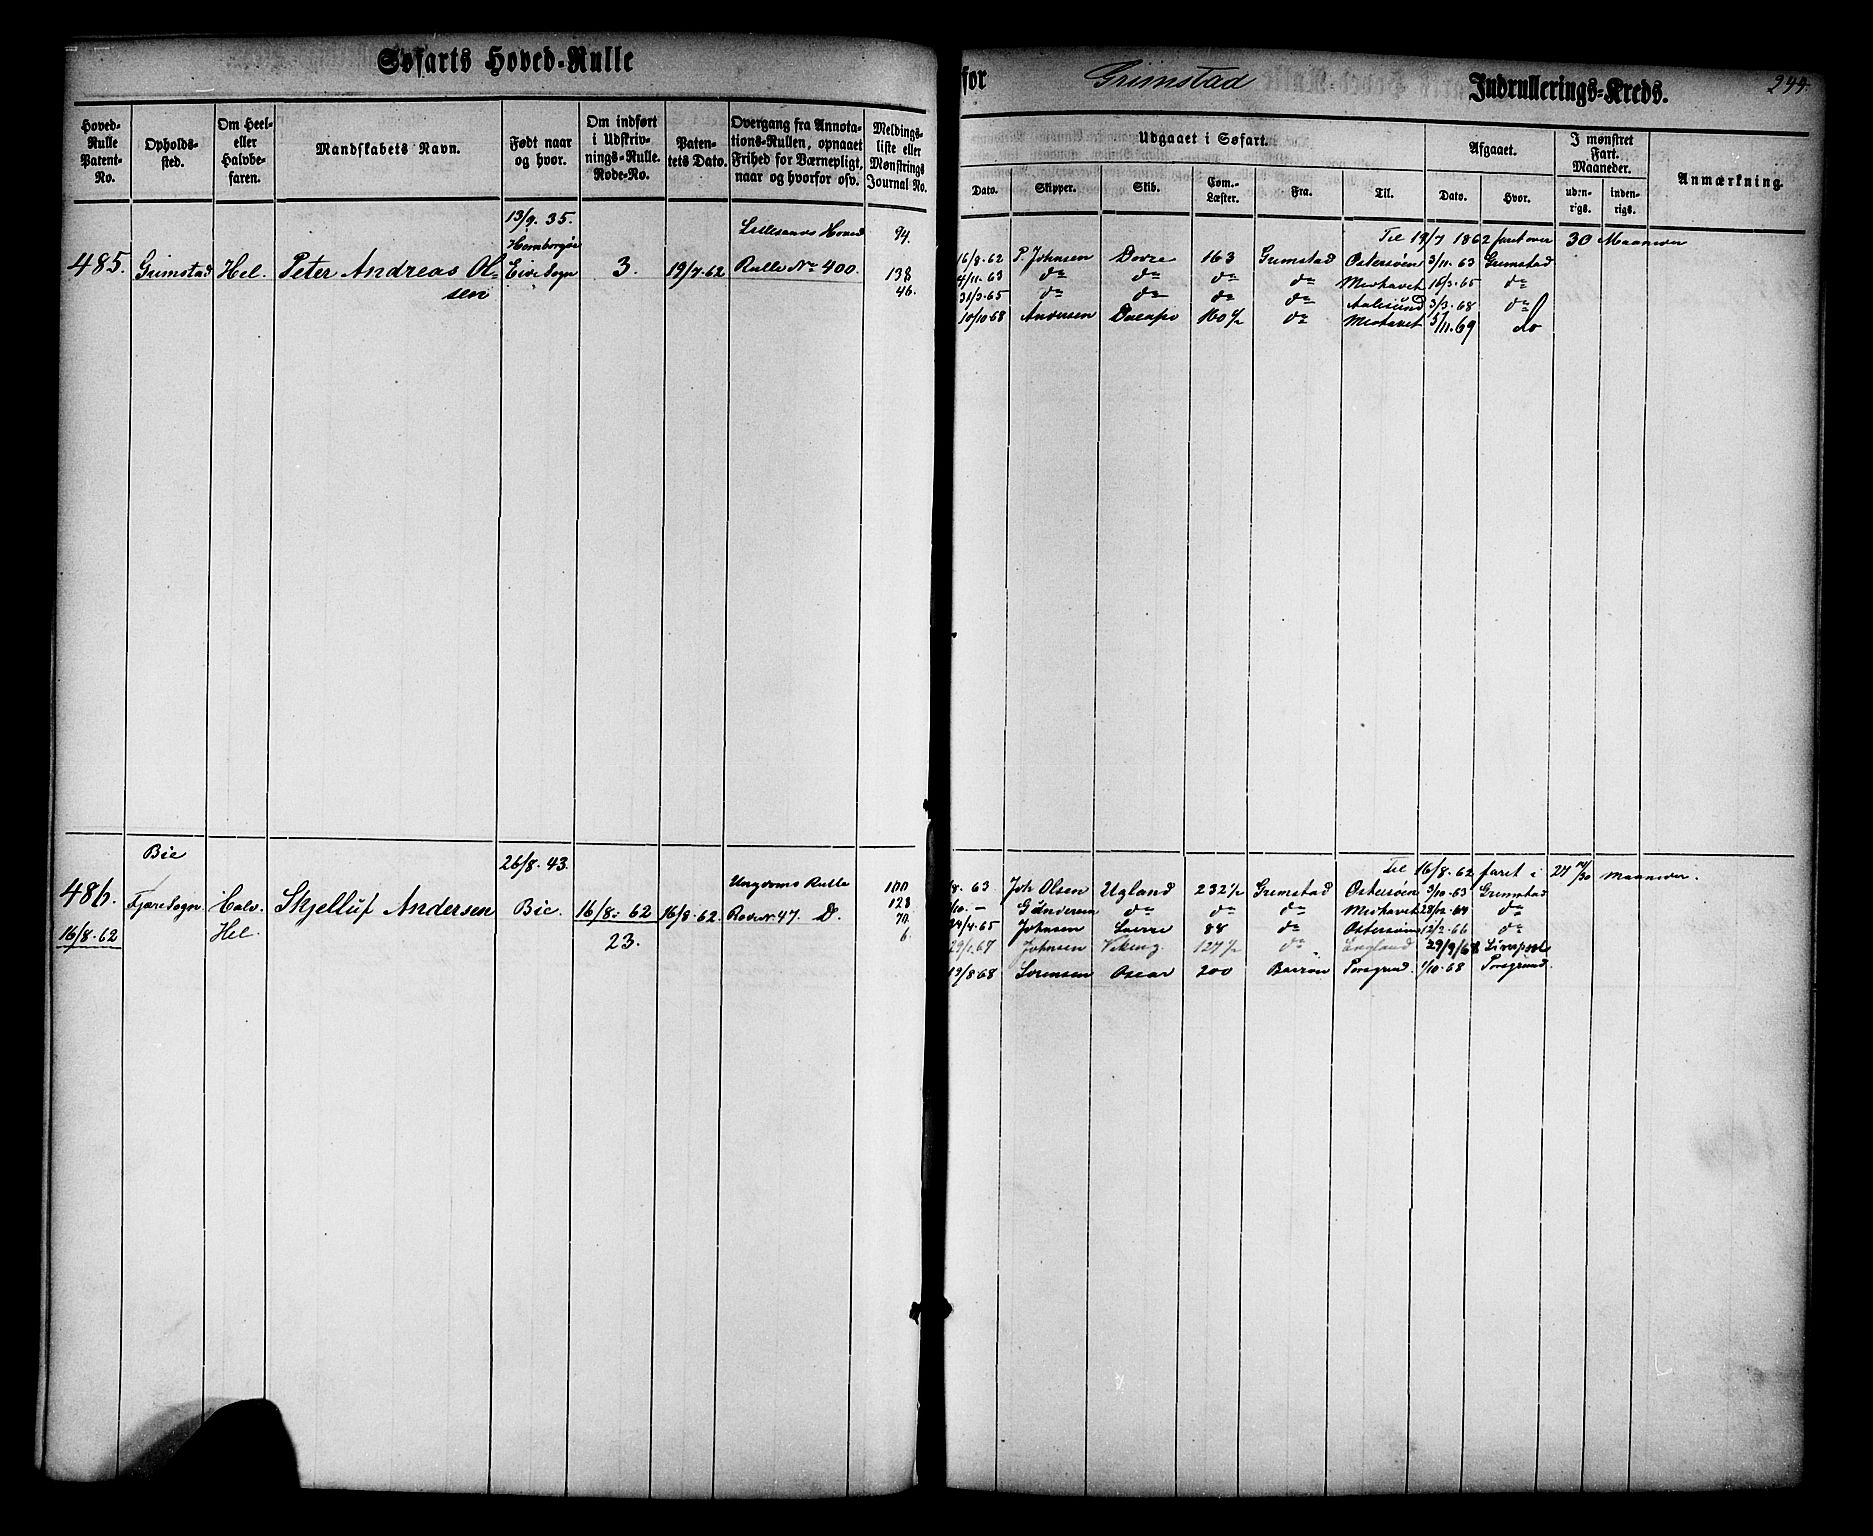 Søfarts Hoved-Rulle
for Grimstad Indrullerings-Kreds. 244.
Hoved-Rulle Patent-No.
Opholds-sted.
Om Heel- eller Halvbe-faren.
Mandskabets Navn.
Født naar og hvor.
Om indført i Udskriv-nings-Rulle. Rode-No.
Paten-tets Dato.
Overgang fra Annota-tions-Rullen, opnaaet Frihed for Værnepligt, naar og hvorfor osv.
Meldings-liste eller Mønstrings Journal No.
Udgaaet i Søfart.
Dato. Skipper. Skib. Com.-Læster. Fra. Til.
Afgaaet.
Dato. Hvor.
I mønstret Fart. Maaneder.
uden-rigs. inden-rigs.
Anmærkning.
13/9. 35.
Lillesands Hoved 94.
485. Grimstad Hel. Peter Andreas Ol- Eide Sogn 3. 19/7.62 Rulle No 400. 138
sen 46.
Til 19/7 1862 faret over 30 Maaneder
16/8.62 P. Johnsen Dovre 163 Grimstad Østersøen 3/11.63 Grimstad
4/11.63 do do do do Midhavet 16/3.65 do
31/3.65 do do do do Aalesund 3/3.68 do
10/10.68 Andersen 160½ do Midhavet 5/11.69 do
Bie 26/8. 43.
Ungdoms Rulle 100
486. Fjære Sogn Halv. Skjelluf Andersen Bie. 16/8. 62 16/8.62. Rode No. 47. D. 128
16/8.62 Hel. 23. 70.
6.
Til 16/8. 62 faret i 27 14/30 Maaneder.
/8. 63 Joh Olsen Ugland 232½ Grimstad Østersøen 3/10.63 Grimstad
/10. — Gundersen do do do Midhavet 28/12.64 do
24/4.65 Johnsen 88 do Østersøen 12/2.66 do
29/1.67 Johnsen Viking. 127½ do England 29/9/68 Liverpool
19/8.68 Sørensen Oscar 200 Porsgrund. 1/10.68 Porsgrund.